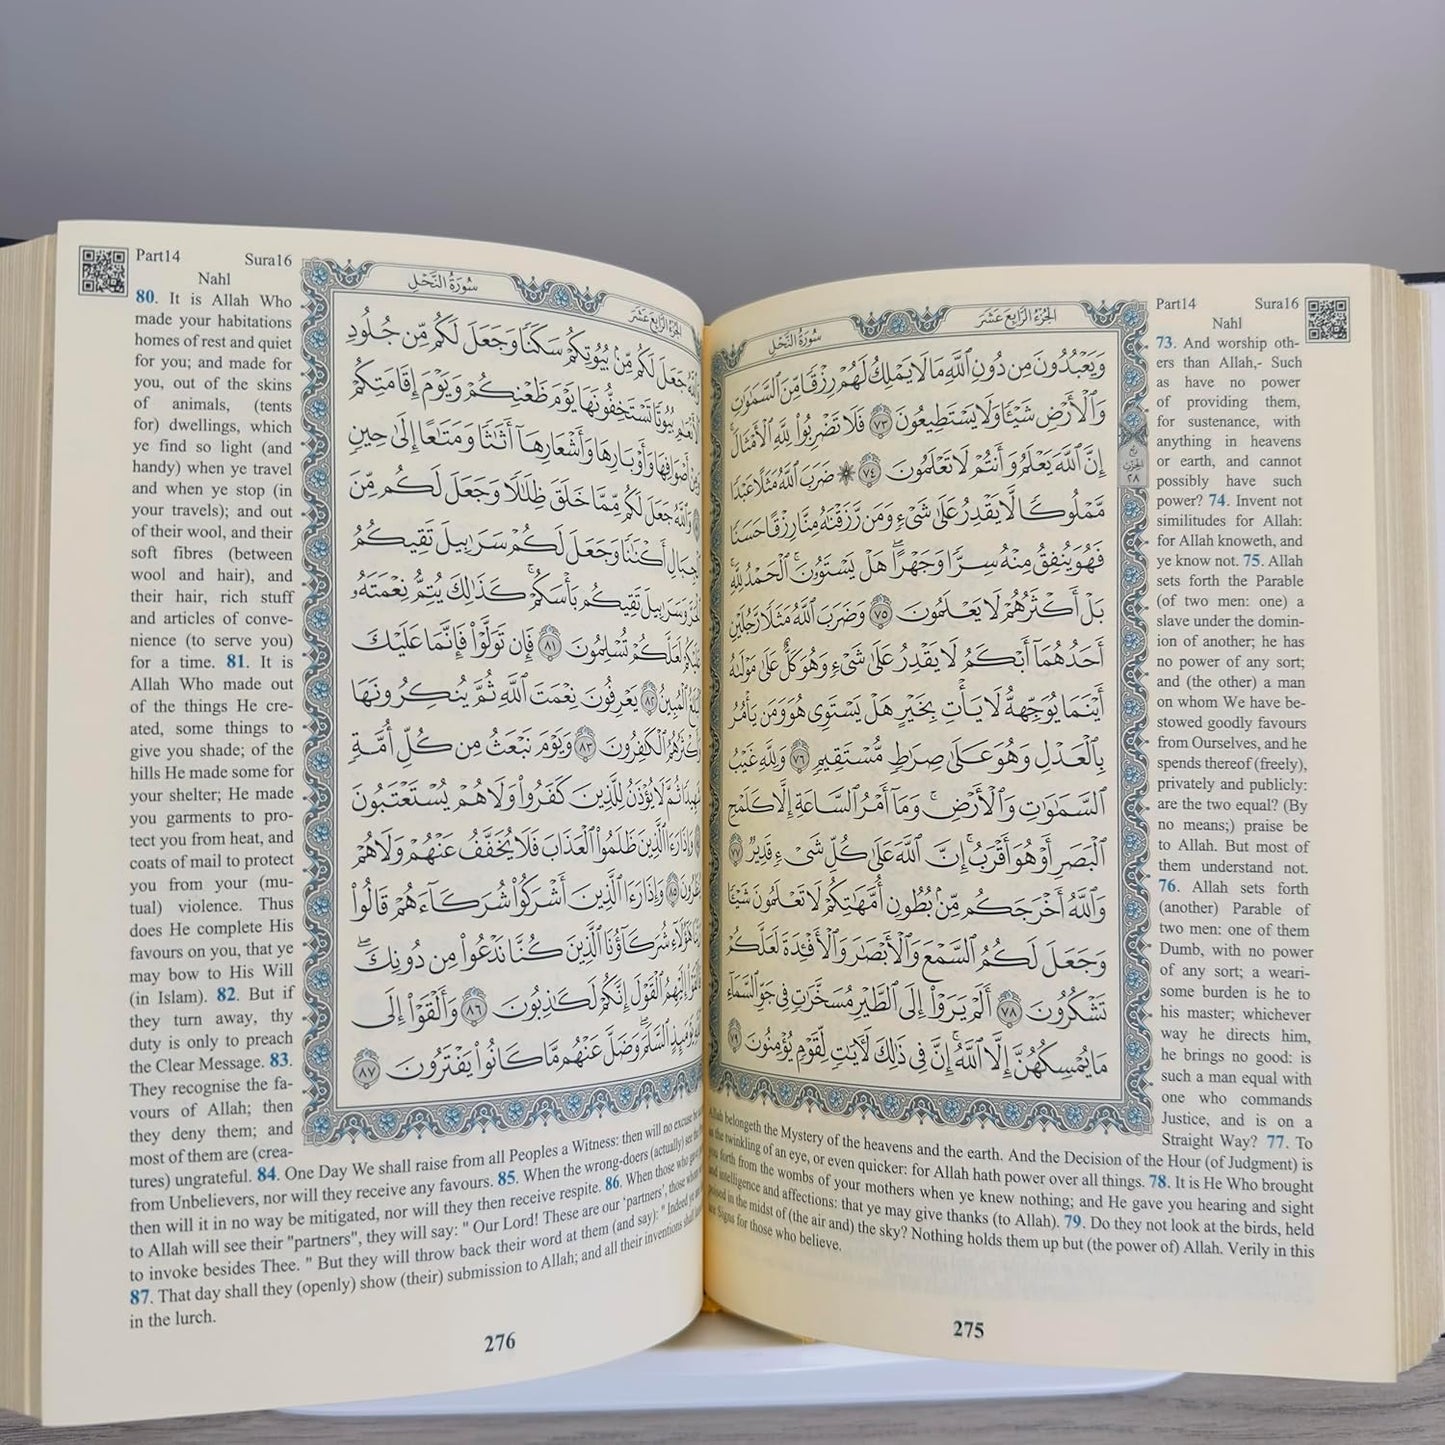 Part14 Sura16
Nahl
سُورَةُ النَّحْلِ
الجُزْءُ الرَّابِعَ عَشَرَ
وَيَعْبُدُونَ مِن دُونِ ٱللَّهِ مَا لَا يَمْلِكُ لَهُمْ رِزْقًا مِّنَ ٱلسَّمَٰوَٰتِ
وَٱلْأَرْضِ شَيْـًٔا وَلَا يَسْتَطِيعُونَ ٧٣ فَلَا تَضْرِبُوا۟ لِلَّهِ ٱلْأَمْثَالَ ۚ
إِنَّ ٱللَّهَ يَعْلَمُ وَأَنتُمْ لَا تَعْلَمُونَ ٧٤ ۞ ضَرَبَ ٱللَّهُ مَثَلًا عَبْدًا
مَّمْلُوكًا لَّا يَقْدِرُ عَلَىٰ شَىْءٍ وَمَن رَّزَقْنَٰهُ مِنَّا رِزْقًا حَسَنًا
فَهُوَ يُنفِقُ مِنْهُ سِرًّا وَجَهْرًا ۖ هَلْ يَسْتَوُۥنَ ۚ ٱلْحَمْدُ لِلَّهِ ۚ
بَلْ أَكْثَرُهُمْ لَا يَعْلَمُونَ ٧٥ وَضَرَبَ ٱللَّهُ مَثَلًا رَّجُلَيْنِ
أَحَدُهُمَآ أَبْكَمُ لَا يَقْدِرُ عَلَىٰ شَىْءٍ وَهُوَ كَلٌّ عَلَىٰ مَوْلَىٰهُ
أَيْنَمَا يُوَجِّههُّ لَا يَأْتِ بِخَيْرٍ ۖ هَلْ يَسْتَوِى هُوَ وَمَن يَأْمُرُ
بِٱلْعَدْلِ ۙ وَهُوَ عَلَىٰ صِرَٰطٍ مُّسْتَقِيمٍ ٧٦ وَلِلَّهِ غَيْبُ
ٱلسَّمَٰوَٰتِ وَٱلْأَرْضِ ۚ وَمَآ أَمْرُ ٱلسَّاعَةِ إِلَّا كَلَمْحِ
ٱلْبَصَرِ أَوْ هُوَ أَقْرَبُ ۚ إِنَّ ٱللَّهَ عَلَىٰ كُلِّ شَىْءٍ قَدِيرٌ ٧٧
وَٱللَّهُ أَخْرَجَكُم مِّنۢ بُطُونِ أُمَّهَٰتِكُمْ لَا تَعْلَمُونَ شَيْـًٔا
وَجَعَلَ لَكُمُ ٱلسَّمْعَ وَٱلْأَبْصَٰرَ وَٱلْأَفْـِٔدَةَ ۙ لَعَلَّكُمْ
تَشْكُرُونَ ٧٨ أَلَمْ يَرَوْا۟ إِلَى ٱلطَّيْرِ مُسَخَّرَٰتٍ فِى جَوِّ ٱلسَّمَآءِ
مَا يُمْسِكُهُنَّ إِلَّا ٱللَّهُ ۗ إِنَّ فِى ذَٰلِكَ لَءَايَٰتٍ لِّقَوْمٍ يُؤْمِنُونَ ٧٩
73. And worship oth-
ers than Allah,- Such
as have no power
of providing them,
for sustenance, with
anything in heavens
or earth, and cannot
possibly have such
power? 74. Invent not
similitudes for Allah:
for Allah knoweth, and
ye know not. 75. Allah
sets forth the Parable
(of two men: one) a
slave under the domin-
ion of another; he has
no power of any sort;
and (the other) a man
on whom We have be-
stowed goodly favours
from Ourselves, and he
spends thereof (freely),
privately and publicly:
are the two equal? (By
no means;) praise be
to Allah. But most of
them understand not.
76. Allah sets forth
(another) Parable of
two men: one of them
Dumb, with no power
of any sort; a weari-
some burden is he to
his master; whichever
way he directs him,
he brings no good: is
such a man equal with
one who commands
Justice, and is on a
Straight Way? 77. To
Allah belongeth the Mystery of the heavens and the earth. And the Decision of the Hour (of Judgment) is
as the twinkling of an eye, or even quicker: for Allah hath power over all things. 78. It is He Who brought
you forth from the wombs of your mothers when ye knew nothing; and He gave you hearing and sight
and intelligence and affections: that ye may give thanks (to Allah). 79. Do they not look at the birds, held
poised in the midst of (the air and) the sky? Nothing holds them up but (the power of) Allah. Verily in this
are Signs for those who believe.
275
Part14 Sura16
Nahl
سُورَةُ النَّحْلِ
الجُزْءُ الرَّابِعَ عَشَرَ
وَٱللَّهُ جَعَلَ لَكُم مِّنۢ بُيُوتِكُمْ سَكَنًا وَجَعَلَ لَكُم مِّن جُلُودِ
ٱلْأَنْعَٰمِ بُيُوتًا تَسْتَخِفُّونَهَا يَوْمَ ظَعْنِكُمْ وَيَوْمَ إِقَامَتِكُمْ ۙ
وَمِنْ أَصْوَافِهَا وَأَوْبَارِهَا وَأَشْعَارِهَآ أَثَٰثًا وَمَتَٰعًا إِلَىٰ حِينٍ
وَٱللَّهُ جَعَلَ لَكُم مِّمَّا خَلَقَ ظِلَٰلًا وَجَعَلَ لَكُم مِّنَ
ٱلْجِبَالِ أَكْنَٰنًا وَجَعَلَ لَكُمْ سَرَٰبِيلَ تَقِيكُمُ
ٱلْحَرَّ وَسَرَٰبِيلَ تَقِيكُم بَأْسَكُمْ ۚ كَذَٰلِكَ يُتِمُّ نِعْمَتَهُۥ
عَلَيْكُمْ لَعَلَّكُمْ تُسْلِمُونَ ٨١ فَإِن تَوَلَّوْا۟ فَإِنَّمَا عَلَيْكَ
ٱلْبَلَٰغُ ٱلْمُبِينُ ٨٢ يَعْرِفُونَ نِعْمَتَ ٱللَّهِ ثُمَّ يُنكِرُونَهَا
وَأَكْثَرُهُمُ ٱلْكَٰفِرُونَ ٨٣ وَيَوْمَ نَبْعَثُ مِن كُلِّ أُمَّةٍ
شَهِيدًا ثُمَّ لَا يُؤْذَنُ لِلَّذِينَ كَفَرُوا۟ وَلَا هُمْ يُسْتَعْتَبُونَ
وَإِذَا رَءَا ٱلَّذِينَ ظَلَمُوا۟ ٱلْعَذَابَ فَلَا يُخَفَّفُ عَنْهُمْ وَلَا هُمْ
يُنظَرُونَ ٨٥ وَإِذَا رَءَا ٱلَّذِينَ أَشْرَكُوا۟ شُرَكَآءَهُمْ قَالُوا۟
رَبَّنَا هَٰٓؤُلَآءِ شُرَكَآؤُنَا ٱلَّذِينَ كُنَّا نَدْعُوا۟ مِن دُونِكَ ۖ
فَأَلْقَوْا۟ إِلَيْهِمُ ٱلْقَوْلَ إِنَّكُمْ لَكَٰذِبُونَ ٨٦ وَأَلْقَوْا۟ إِلَى
ٱللَّهِ يَوْمَئِذٍ ٱلسَّلَمَ ۖ وَضَلَّ عَنْهُم مَّا كَانُوا۟ يَفْتَرُونَ ٨٧
80. It is Allah Who
made your habitations
homes of rest and quiet
for you; and made for
you, out of the skins
of animals, (tents
for) dwellings, which
ye find so light (and
handy) when ye travel
and when ye stop (in
your travels); and out
of their wool, and their
soft fibres (between
wool and hair), and
their hair, rich stuff
and articles of conve-
nience (to serve you)
for a time. 81. It is
Allah Who made out
of the things He cre-
ated, some things to
give you shade; of the
hills He made some for
your shelter; He made
you garments to pro-
tect you from heat, and
coats of mail to protect
you from your (mu-
tual) violence. Thus
does He complete His
favours on you, that ye
may bow to His Will
(in Islam). 82. But if
they turn away, thy
duty is only to preach
the Clear Message. 83.
They recognise the fa-
vours of Allah; then
they deny them; and
most of them are (crea-
tures) ungrateful. 84. One Day We shall raise from all Peoples a Witness: then will no excuse be
from Unbelievers, nor will they receive any favours. 85. When the wrong-doers (actually) see the
then will it in no way be mitigated, nor will they then receive respite. 86. When those who gave
to Allah will see their "partners", they will say: " Our Lord! These are our 'partners', those whom
to invoke besides Thee. " But they will throw back their word at them (and say): " Indeed ye are
87. That day shall they (openly) show (their) submission to Allah; and all their inventions shall
in the lurch.
276